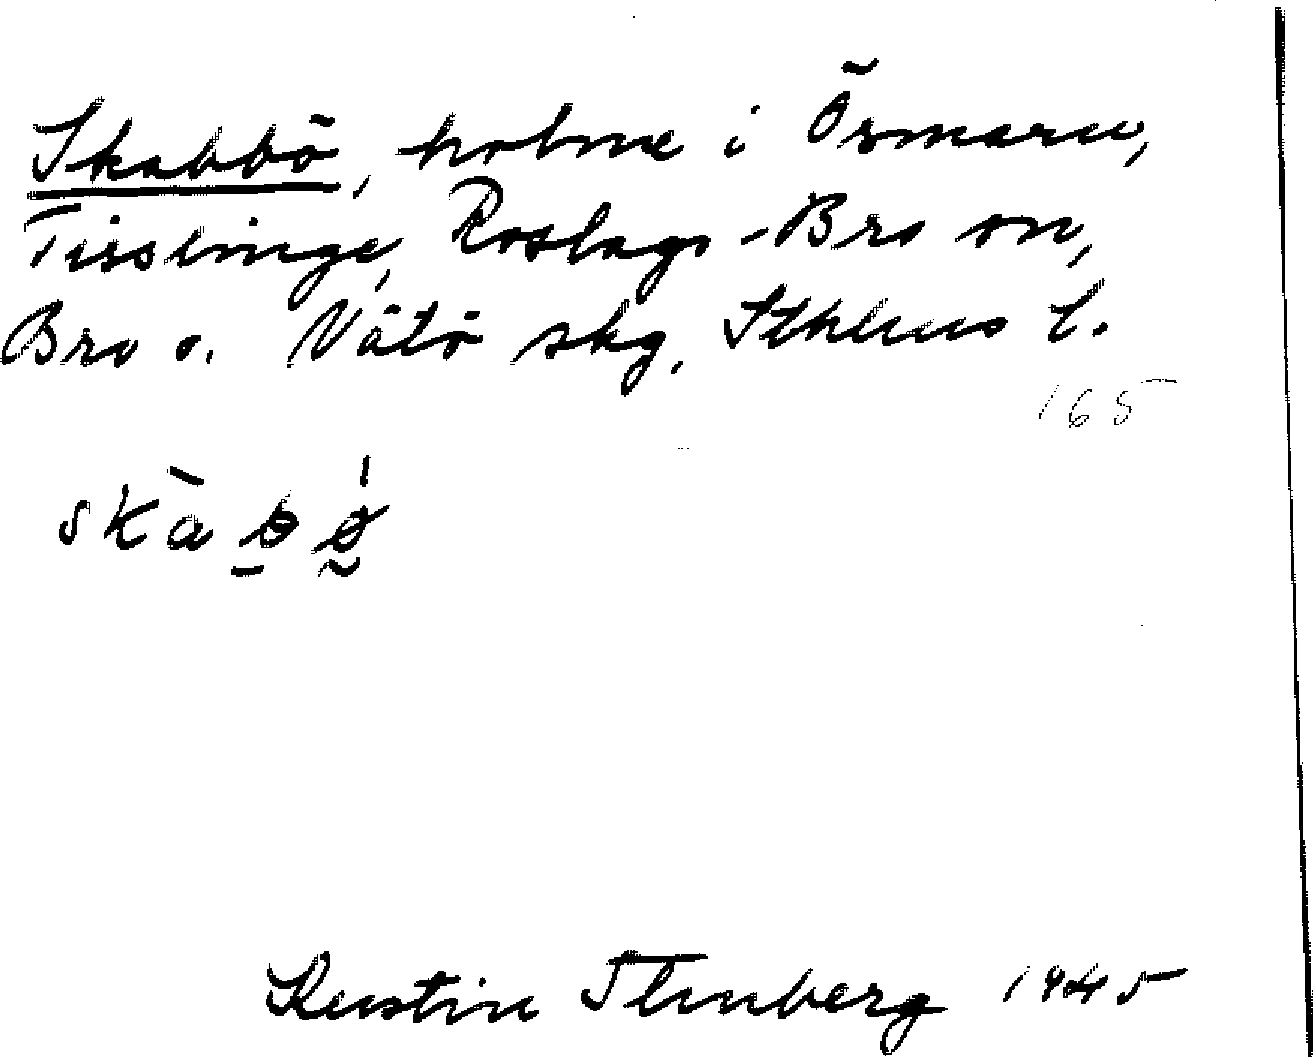 Skabbö, holme i Örmaren,
Tisslinge, Roslags-Bro sn,
Bro o. Vätö skg, Sthlms l.
165
skàbǿ
Kerstin Stenberg 1945